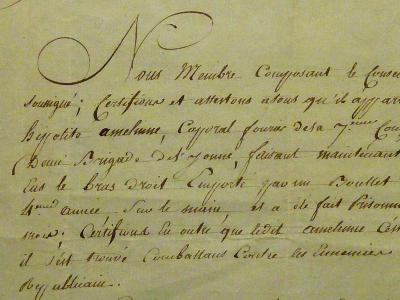 Nous Membre Composant le Conse
soussigné; Certifions et attestons atous qu'il appar
hypolite amelinne, Caporal fourier dela 7eme Com
Demi Brigade de l'yonne, faisant maintenant
Eus le bras droit Emporté par un Boullet
4eme année - Sur le main, et a été fait Prisonn
; Certifions En outre que ledit amelinne
il s'est trouvé Combattans Contre les Ennemies
Republicain.